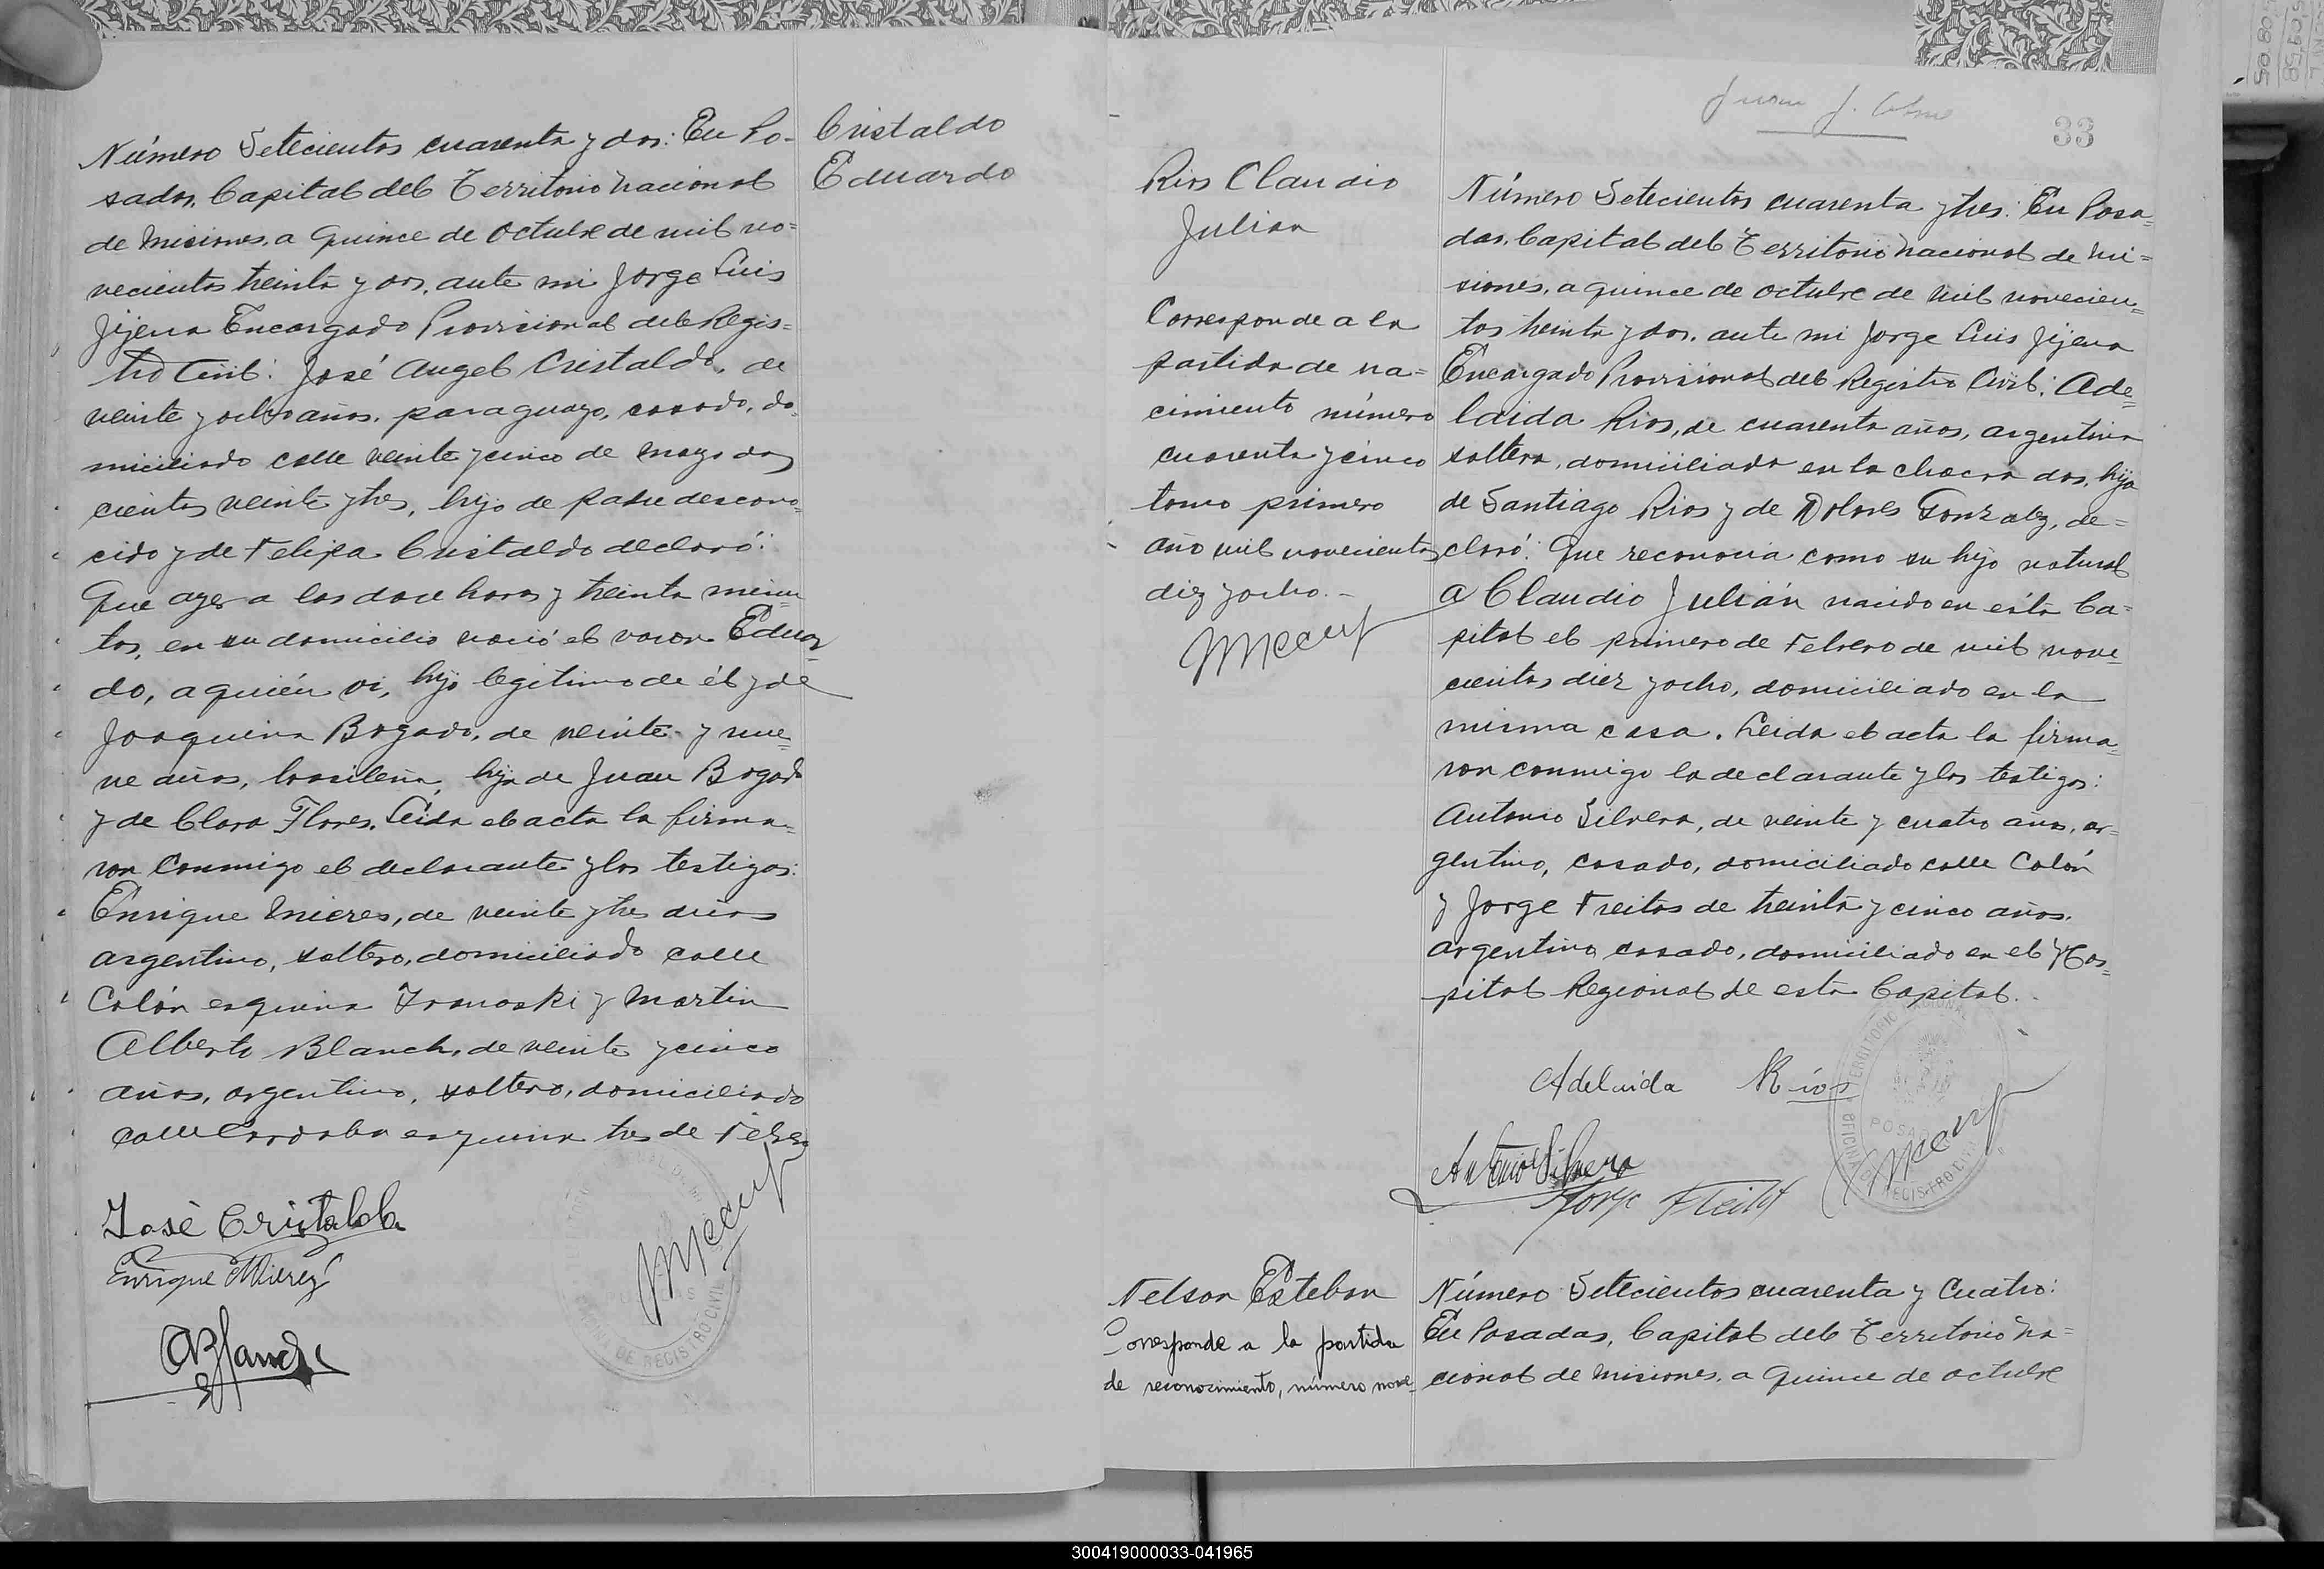 Cristaldo
Eduardo
Número Setecientos cuarenta y dos: En Po-
sadas, Capital del Territorio Nacional
de Misiones, a quince de Octubre de mil no=
vecientos treinta y dos, ante mi Jorge Luis
Jijena Encargado Provisional del Regis=
tro Civil: José Angel Cristaldo, de
veinte y ocho años, paraguayo, casado, do-
miciliado calle veinte y cinco de Mayo dos
cientos veinte y tres, hijo de padre descono-
cido y de Felipa Cristaldo declaró:
Que ayer a las doce horas y treinta minu
tos, en su domicilio nació el varon Eduar
do, a quién vi, hijo legítimo de él y de
Joaquina Bogado, de veinte y nue-
ve años, brasileña, hija de Juan Bogado
y de Clara Flores. Leida el acta la firma=
ron conmigo el declarante y los testigos:
Enrique Mieres, de veinte y tres años
argentino, soltero, domiciliado calle
Colón esquina Ivanoski y Martin
Alberto Blanch, de veinte y cinco
años, argentino, soltero, domiciliado
calle Cordoba esquina tres de Febre
José Cristaldo
Enrique Mierez
ABlanch
33
Rios Claudio
Julian
Corresponde a la
partida de na=
cimiento número
cuarenta y cinco
tomo primero
año mil novecientos
diez y ocho.-
Número Setecientos cuarenta y tres: En Posa=
das, Capital del Territorio Nacional de Mi=
siones, a quince de octubre de mil novecien=
tos treinta y dos, ante mi Jorge Luis Jijena
Encargado Provisional del Registro Civil: Ade=
laida Rios, de cuarenta años, argentina
soltera, domiciliada en la chacra dos, hija
de Santiago Rios y de Dolores Gonzalez, de=
claró: Que reconocia como su hijo natural
a Claudio Julián nacido en ésta Ca=
pital el primero de Febrero de mil nove=
cientos diez y ocho, domiciliado en la
misma casa. Leida el acta la firma=
ron conmigo la declarante y los testigos:
Antonio Silvera, de veinte y cuatro años, ar=
gentino, casado, domiciliado calle Colón
y Jorge Freitas de treinta y cinco años,
argentino casado, domiciliado en el Hos=
pital Regional de esta Capital.
Adelaida Rios
Antonio Silvera
Jorge Freitas
POSADAS
OFICINA DE REGISTRO CIVIL
Nelson Esteban
Corresponde a la partida
de reconocimiento, número nove-
Número Setecientos cuarenta y Cuatro:
En Posadas, Capital del Territorio Na=
cional de Misiones, a quince de octubre
300419000033-041965